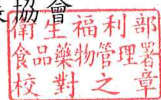 協會
衛生福利部
食品藥物管理署
校對之章